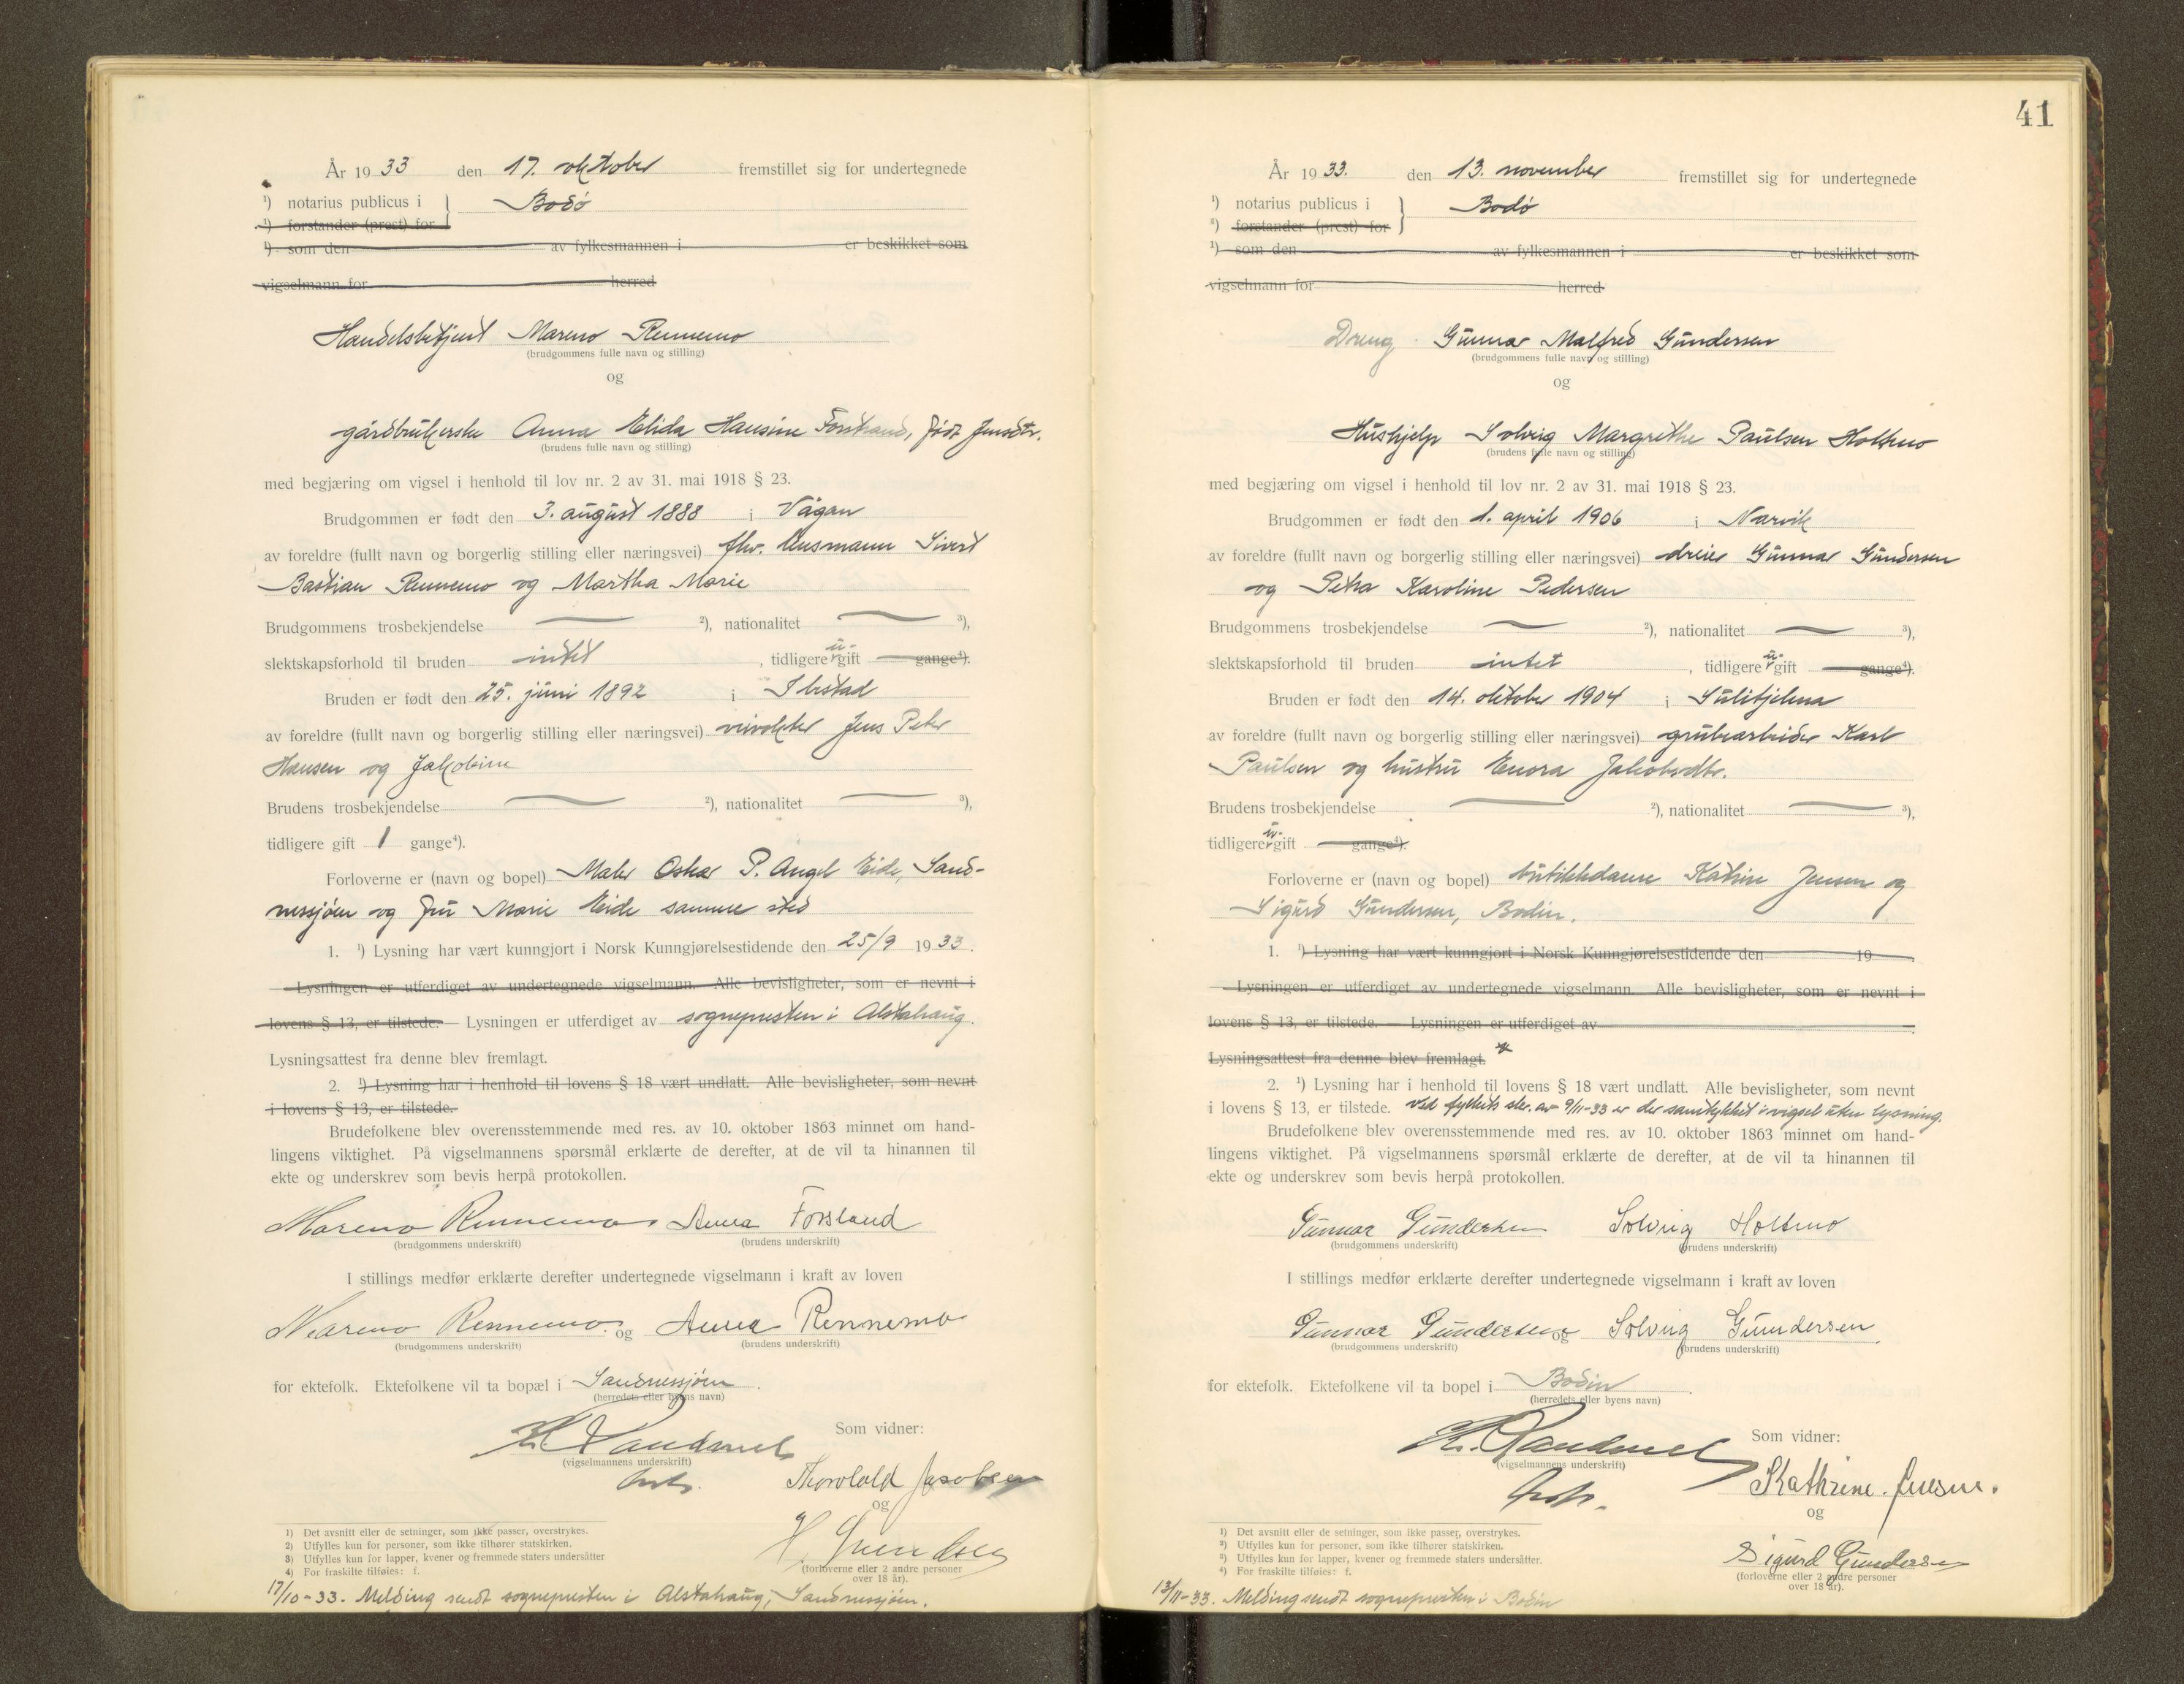 År 1933 den 17. oktober fremstillet sig for undertegnede
¹) notarius publicus i } Bodø
²) forstander (prest) for
¹) som den av fylkesmannen i er beskikket som
vigselmann for herred
Handelsbetjent Mareno Rennemo
(brudgommens fulle navn og stilling)
og
gårdbrukerske Anna Elida Hansine Forsland, født Jensdtr.
(brudens fulle navn og stilling)
med begjæring om vigsel i henhold til lov nr. 2 av 31. mai 1918 § 23.
Brudgommen er født den 3. august 1888 i Vågan
av foreldre (fullt navn og borgerlig stilling eller næringsvei) fhv. husmann Sivert
Bastian Rennemo og Martha Marie
Brudgommens trosbekjendelse — ²), nationalitet — ³),
slektskapsforhold til bruden intet , tidligere u-gift gange⁴).
Bruden er født den 25. juni 1892 i Ibestad
av foreldre (fullt navn og borgerlig stilling eller næringsvei) veivokter Jens Peter
Hansen og Jakobine
Brudens trosbekjendelse — ²), nationalitet — ³),
tidligere gift 1 gange⁴).
Forloverne er (navn og bopel) Maler Oskar P. Angel Eide, Sand-
nessjøen og fru Marie Eide samme sted
1. ¹) Lysning har vært kunngjort i Norsk Kunngjørelsestidende den 25/9 1933.
Lysningen er utferdiget av undertegnede vigselmann. Alle bevisligheter, som er nevnt i
lovens § 13, er tilstede. — Lysningen er utferdiget av sognepresten i Alstahaug.
Lysningsattest fra denne blev fremlagt.
2. ¹) Lysning har i henhold til lovens § 18 vært undlatt. Alle bevisligheter, som nevnt
i lovens § 13, er tilstede.
Brudefolkene blev overensstemmende med res. av 10. oktober 1863 minnet om hand-
lingens viktighet. På vigselmannens spørsmål erklærte de derefter, at de vil ta hinannen til
ekte og underskrev som bevis herpå protokollen.
Mareno Rennemo. Anna Forsland
(brudgommens underskrift) (brudens underskrift)
I stillings medfør erklærte derefter undertegnede vigselmann i kraft av loven
Mareno Rennemo. og Anna Rennemo
(brudgommens underskrift) (brudens underskrift)
for ektefolk. Ektefolkene vil ta bopæl i Sandnessjøen.
(herredets eller byens navn)
Som vidner:
(vigselmannens underskrift)
Thorolald Jacobsen
og
(forloverne eller 2 andre personer
over 18 år).
1) Det avsnitt eller de setninger, som ikke passer, overstrykes.
2) Utfylles kun for personer, som ikke tilhører statskirken.
3) Utfylles kun for lapper, kvener og fremmede staters undersåtter
4) For fraskilte tilføies: f.
17/10-33. Melding sendt sognepresten i Alstahaug, Sandnessjøen.
41
År 1933. den 13. november fremstillet sig for undertegnede
¹) notarius publicus i } Bodø
²) forstander (prest) for
¹) som den av fylkesmannen i er beskikket som
vigselmann for herred
Dreng. Gunnar Malfred Gundersen
(brudgommens fulle navn og stilling)
og
Hushjelp Solvig Margrethe Paulsen Holtmo
(brudens fulle navn og stilling)
med begjæring om vigsel i henhold til lov nr. 2 av 31. mai 1918 § 23.
Brudgommen er født den 1. april 1906 i Narvik
av foreldre (fullt navn og borgerlig stilling eller næringsvei) dreier Gunnar Gundersen
og Petra Karoline Pedersen
Brudgommens trosbekjendelse — ²), nationalitet — ³),
slektskapsforhold til bruden intet , tidligere u-gift gange⁴).
Bruden er født den 14. oktober 1904 i Sulitjelma
av foreldre (fullt navn og borgerlig stilling eller næringsvei) grubearbeider Karl
Paulsen og hustru Enora Jakobsdtr.
Brudens trosbekjendelse — ²), nationalitet — ³),
tidligere u-gift gange⁴).
Forloverne er (navn og bopel) butikkdame Katrine Jensen og
Sigurd Gundersen, Bodin.
1. ¹) Lysning har vært kunngjort i Norsk Kunngjørelsestidende den 19 .
Lysningen er utferdiget av undertegnede vigselmann. Alle bevisligheter, som er nevnt i
lovens § 13, er tilstede. — Lysningen er utferdiget av
Lysningsattest fra denne blev fremlagt.
2. ¹) Lysning har i henhold til lovens § 18 vært undlatt. Alle bevisligheter, som nevnt
i lovens § 13, er tilstede. Ved fylkets skr. av 9/11-33 er der samtykket i vigsel uten lysning.
Brudefolkene blev overensstemmende med res. av 10. oktober 1863 minnet om hand-
lingens viktighet. På vigselmannens spørsmål erklærte de derefter, at de vil ta hinannen til
ekte og underskrev som bevis herpå protokollen.
Gunnar Gundersen Solvig Holtmo
(brudgommens underskrift) (brudens underskrift)
I stillings medfør erklærte derefter undertegnede vigselmann i kraft av loven
Gunnar Gundersen og Solvig Gundersen.
(brudgommens underskrift) (brudens underskrift)
for ektefolk. Ektefolkene vil ta bopel i Bodin.
(herredets eller byens navn)
Som vidner:
(vigselmannens underskrift)
Kathrine Jensen.
og
Sigurd Gundersen
(forloverne eller 2 andre personer
over 18 år).
¹) Det avsnitt eller de setninger, som ikke passer, overstrykes.
²) Utfylles kun for personer, som ikke tilhører statskirken.
³) Utfylles kun for lapper, kvener og fremmede staters undersåtter.
⁴) For fraskilte tilføies: f.
13/11-33. Melding sendt sognepresten i Bodin